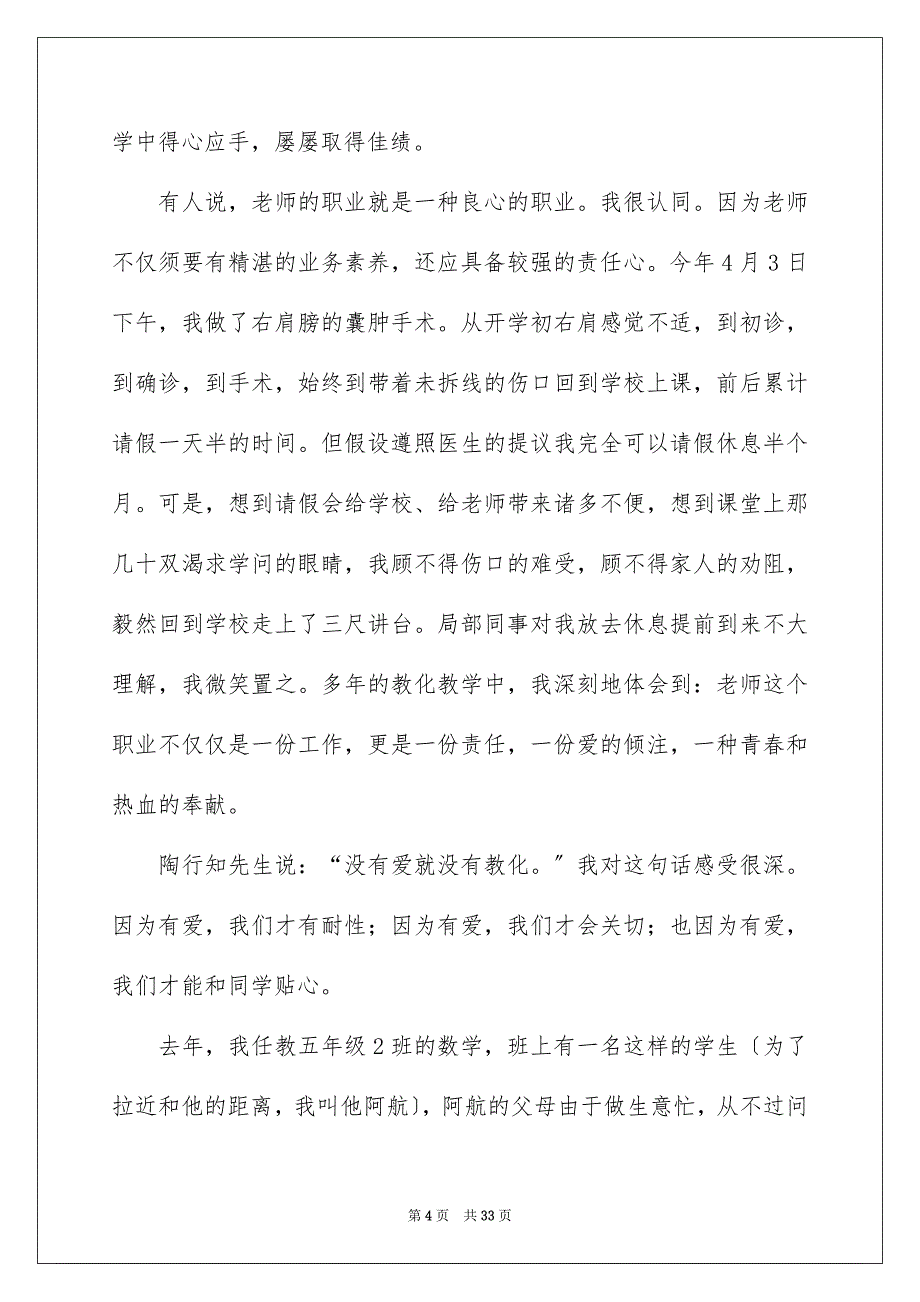 学中得心应手，屡屡取得佳绩。
有人说，老师的职业就是一种良心的职业。我很认同。因为老师
不仅须要有精湛的业务素养，还应具备较强的责任心。今年 4 月 3 日
下午，我做了右肩膀的囊肿手术。从开学初右肩感觉不适，到初诊，
到确诊，到手术，始终到带着未拆线的伤口回到学校上课，前后累计
请假一天半的时间。但假设遵照医生的提议我完全可以请假休息半个
月。可是，想到请假会给学校、给老师带来诸多不便，想到课堂上那
几十双渴求学问的眼睛，我顾不得伤口的难受，顾不得家人的劝阻，
毅然回到学校走上了三尺讲台。局部同事对我放去休息提前到来不大
理解，我微笑置之。多年的教化教学中，我深刻地体会到：老师这个
职业不仅仅是一份工作，更是一份责任，一份爱的倾注，一种青春和
热血的奉献。
陶行知先生说：“没有爱就没有教化。〞我对这句话感受很深。
因为有爱，我们才有耐性；因为有爱，我们才会关切；也因为有爱，
我们才能和同学贴心。
去年，我任教五年级 2 班的数学，班上有一名这样的学生〔为了
拉近和他的距离，我叫他阿航〕，阿航的父母由于做生意忙，从不过问
第 4 页 共 33 页